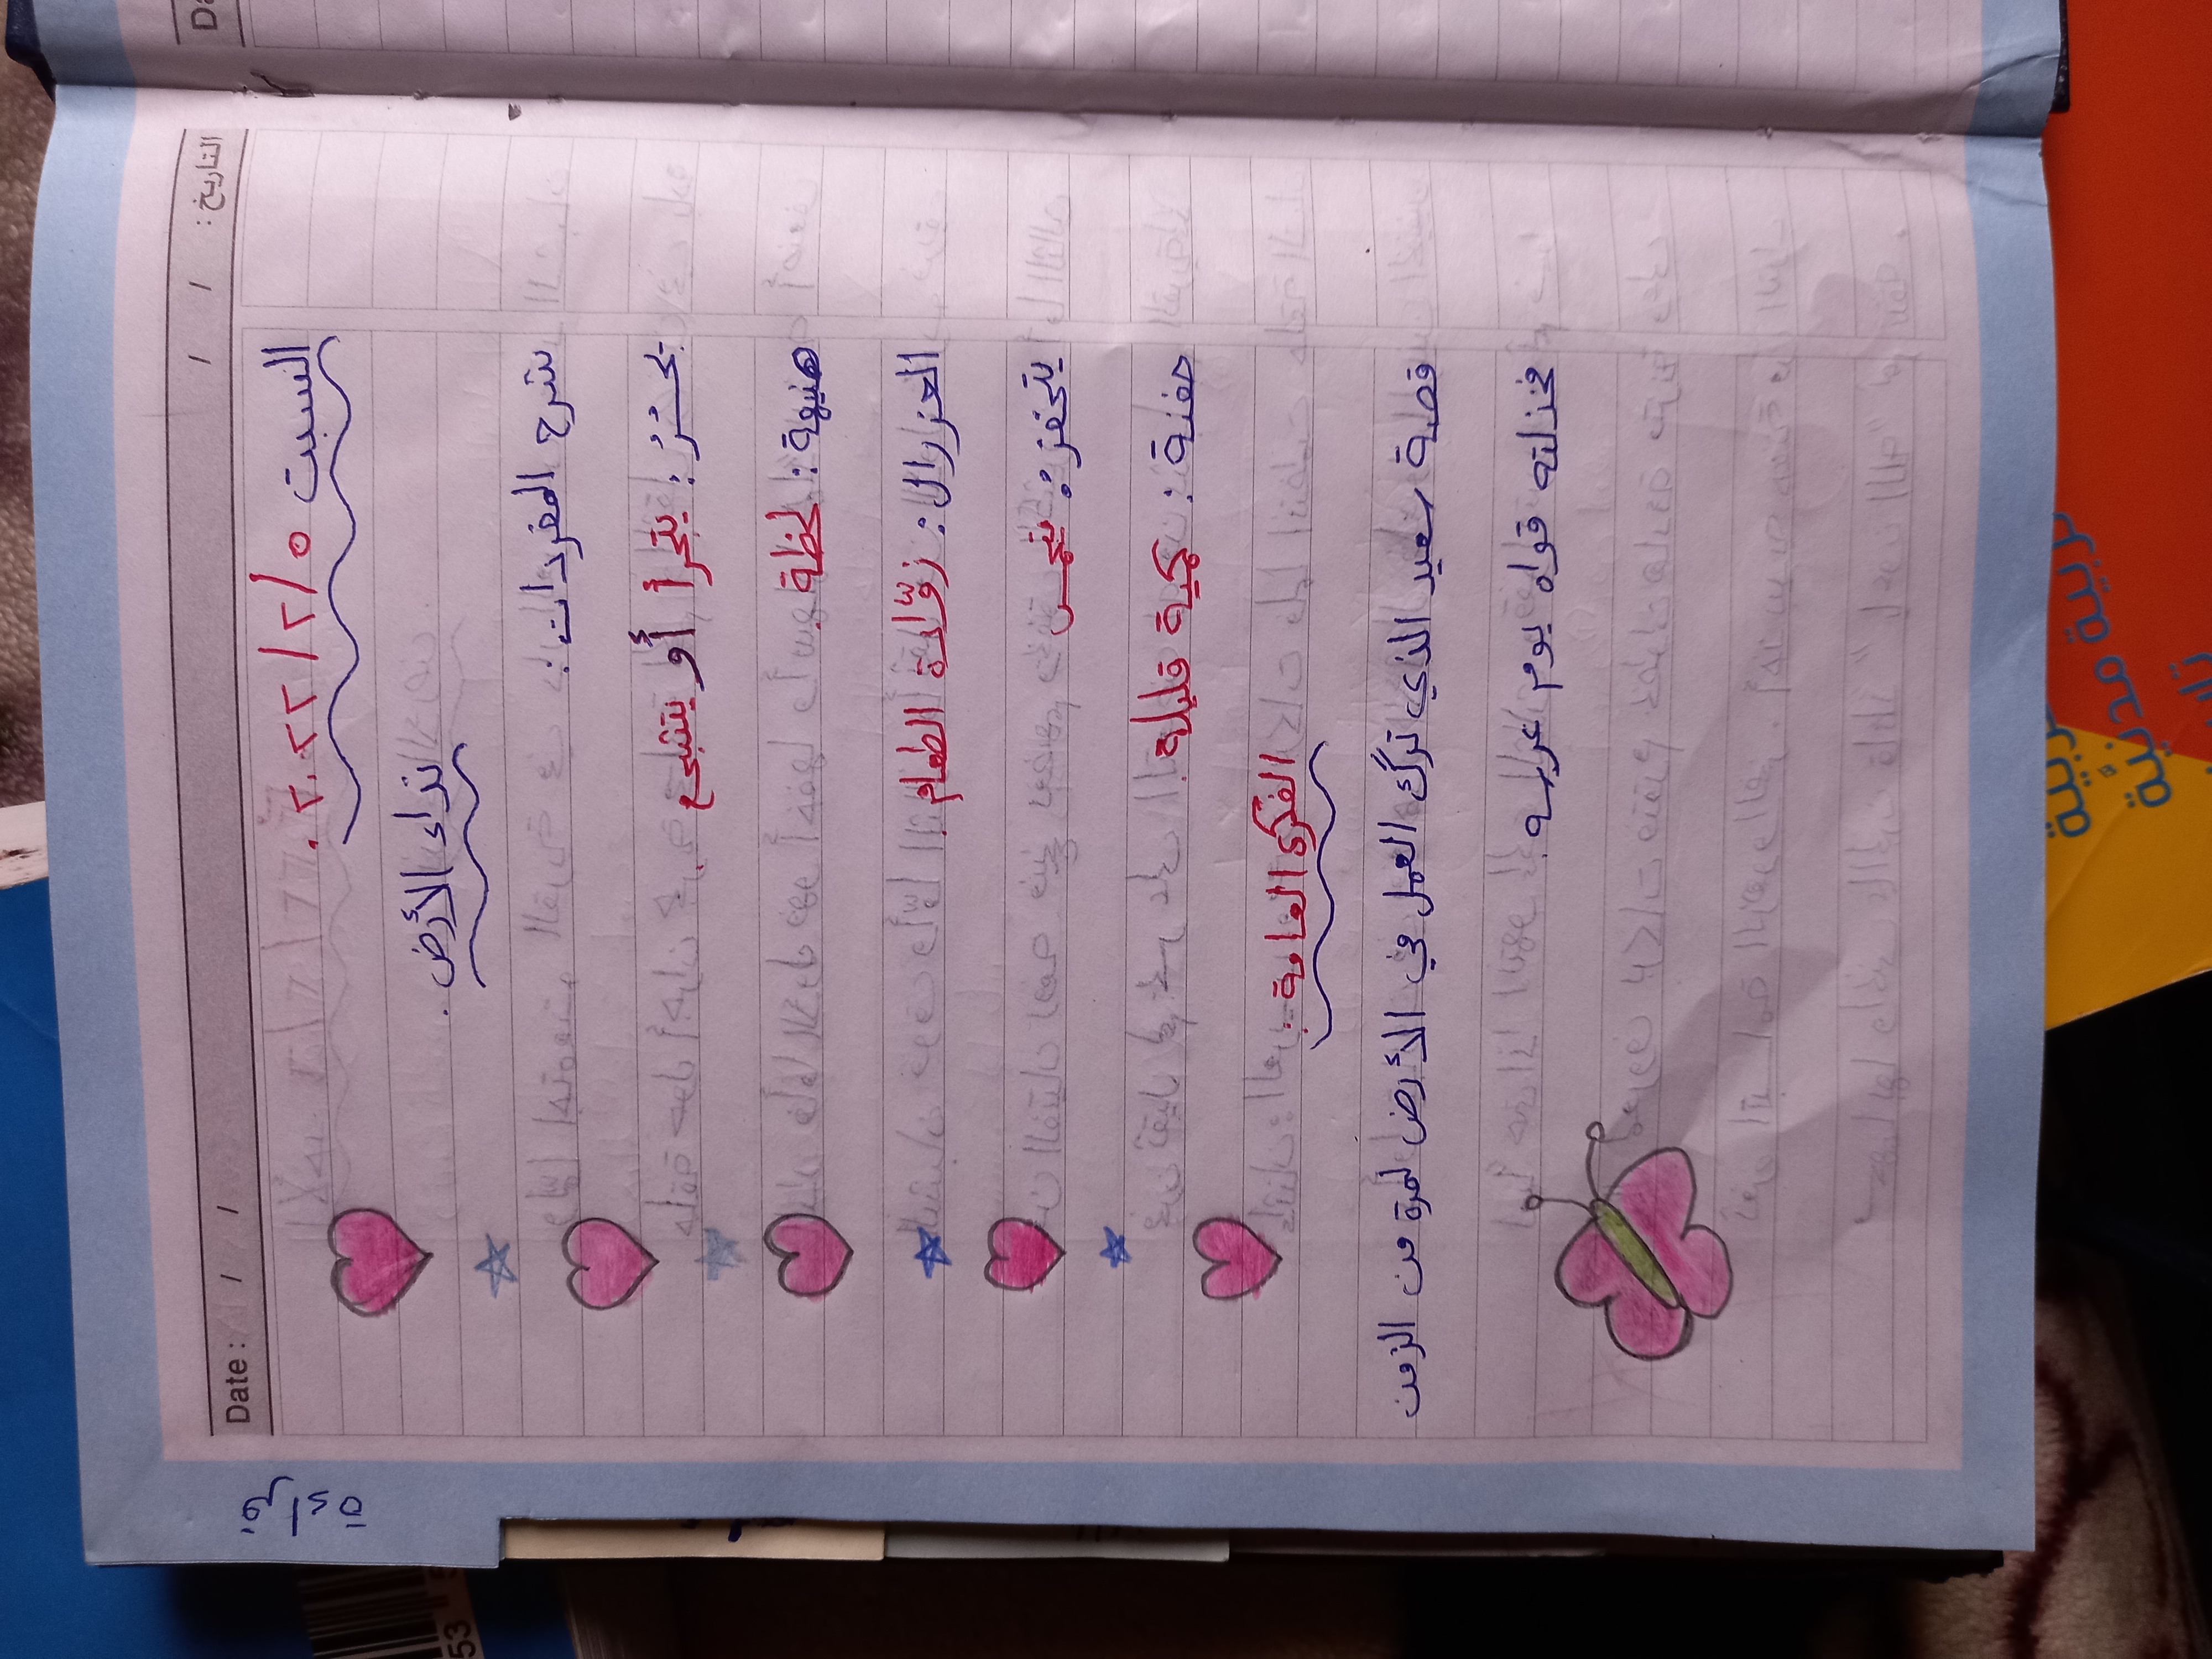 قراءة
Date : / /
التاريخ : / /
السبت ٢٠٢٢/٢/٥ .
نداء الأرض .
شرح المفردات :
يجسُرُ : يتجرأ أو يتشجع .
هنيهة : لحظة .
العزرال : زوّادة الطعام .
يتحفزُ : يتحمس
حفنة : كمية قليلة .
الفكرة العامة :
قصة سعيد الذي ترك العمل في الأرض لمدة من الزمن
فخذلته قواه يوم عرسه .
تربية مدنيَّة
53